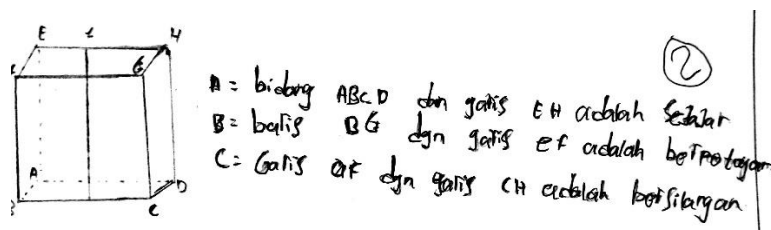 E H
G
A D
C
2
A = bidang ABCD dan garis EH adalah Sejajar
B = baris BG dgn garis EF adalah berpotogan
C = Garis AF dgn garis CH adalah bersilangan